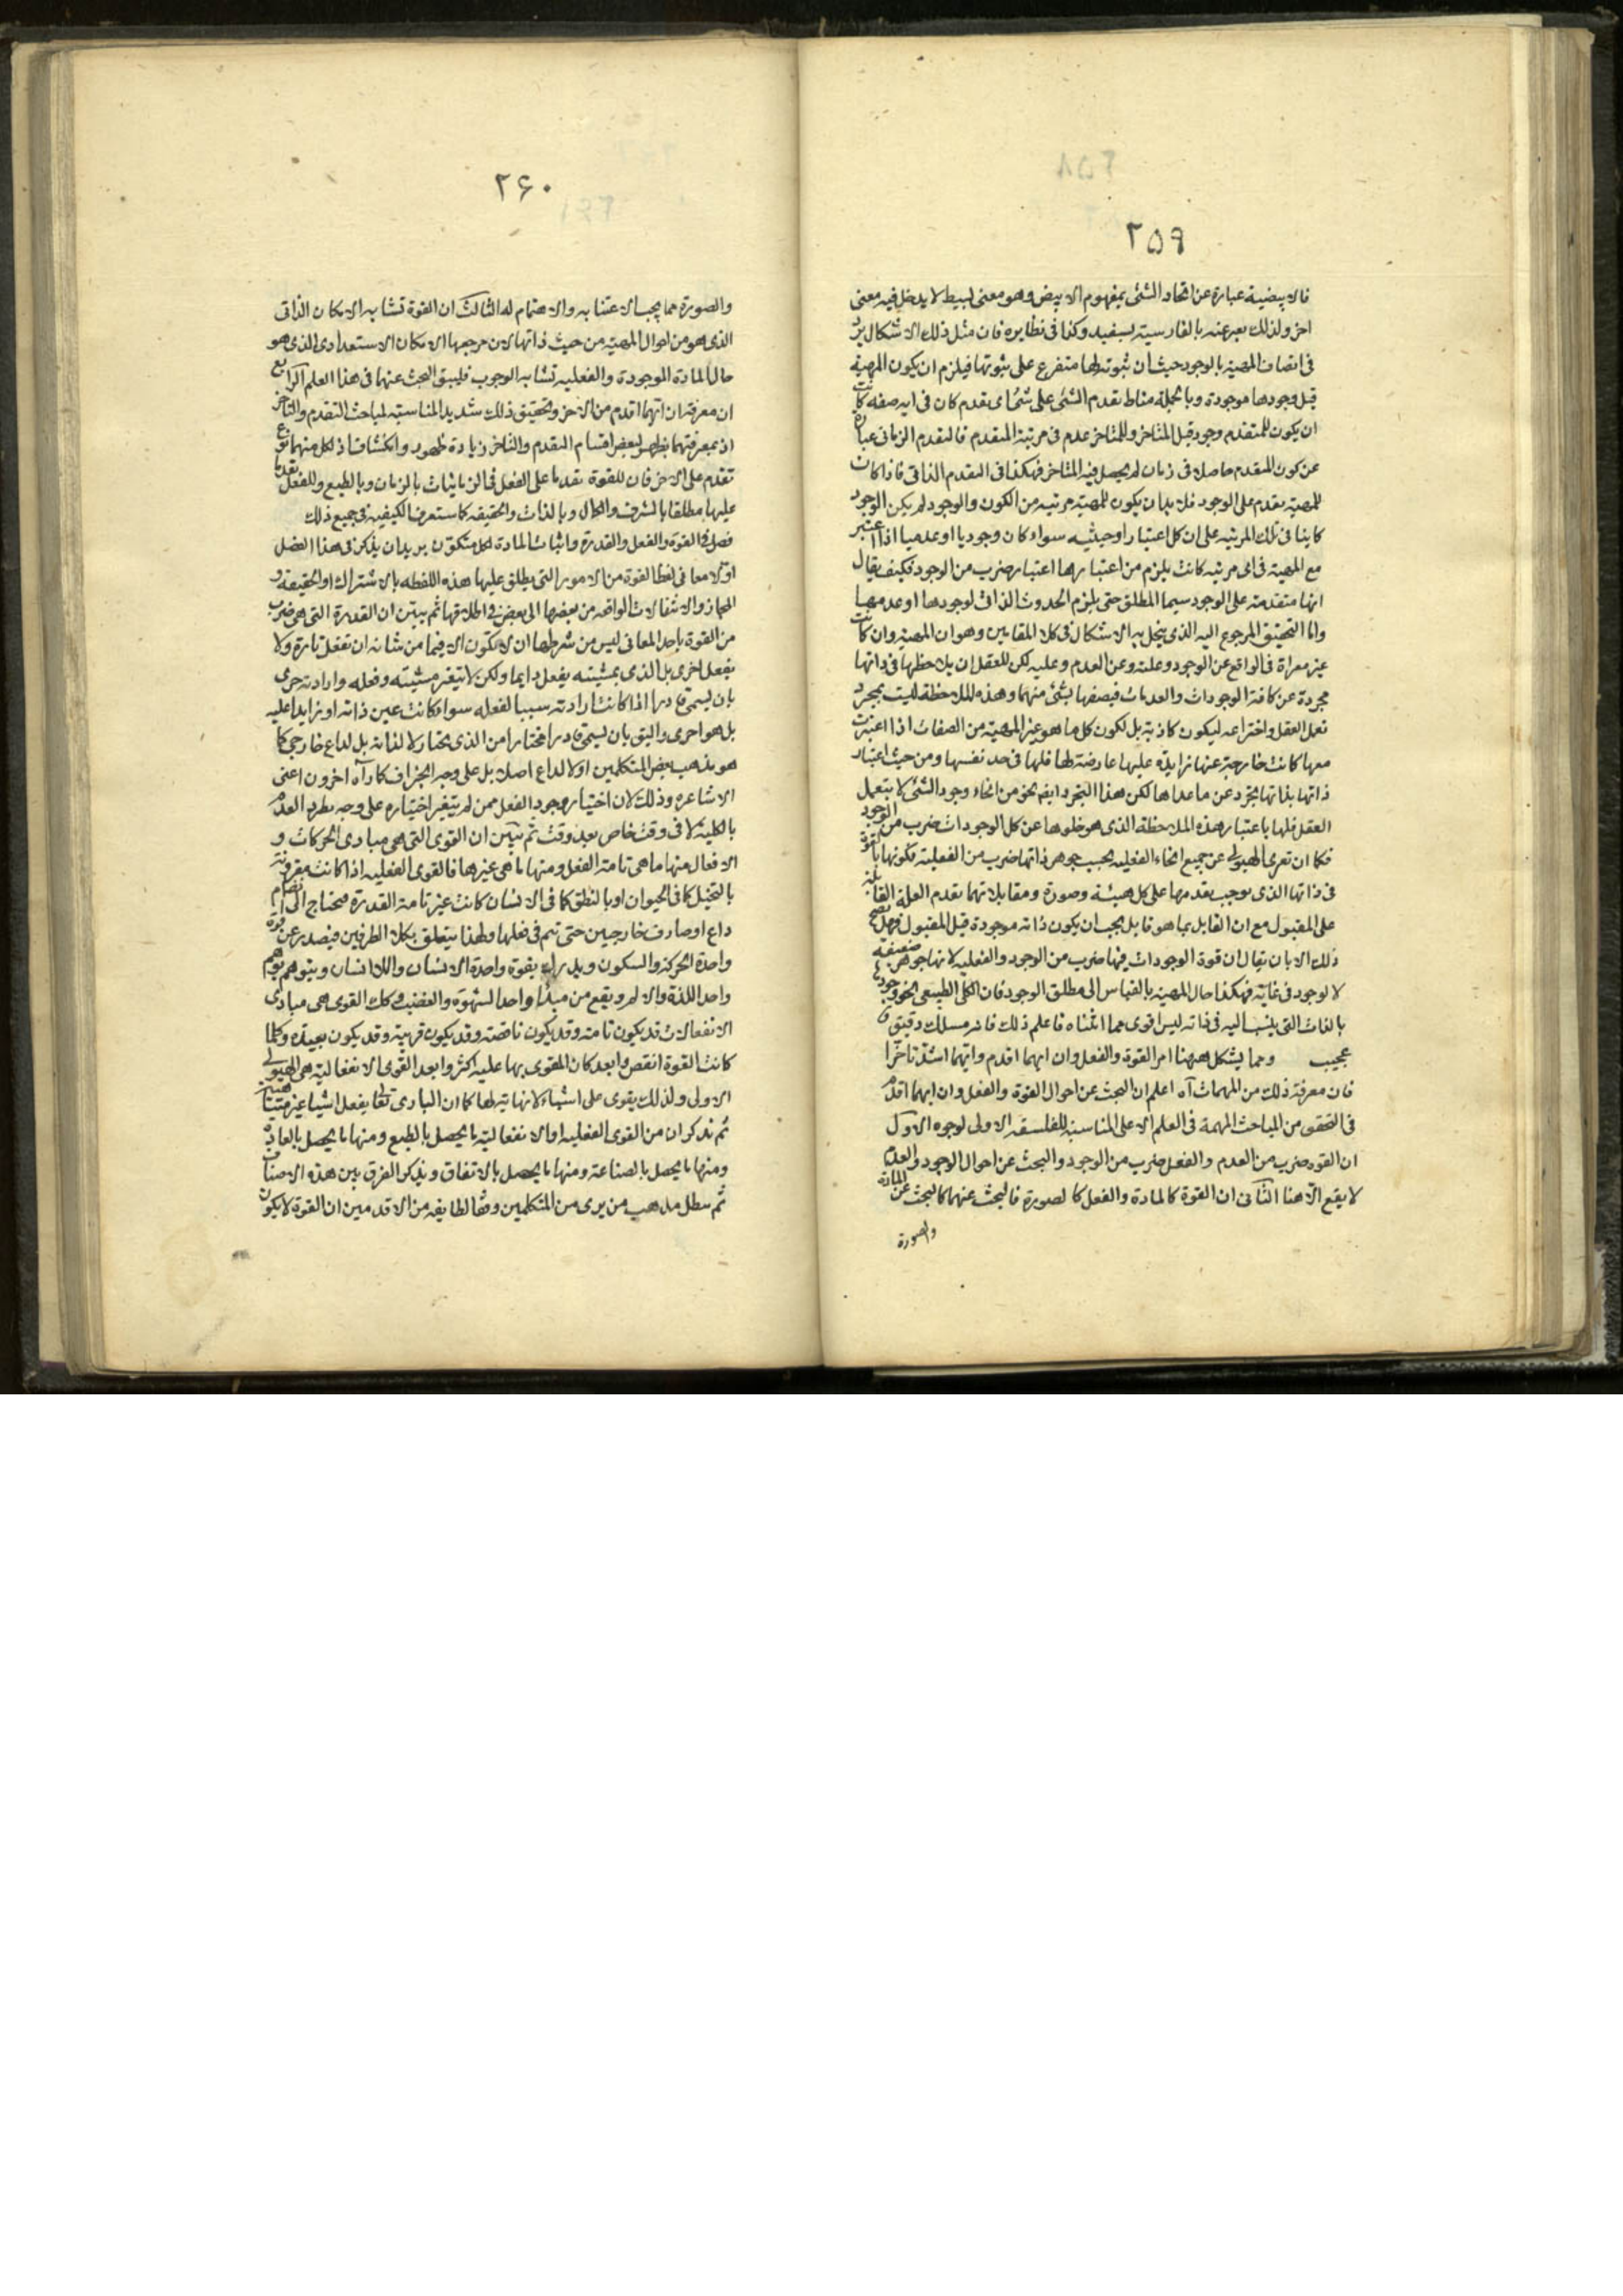 ۲۵۹
فالابيضية عبارة عن اتحاد الشئ بمفهوم الابيض وهو معنى بسيط لا يدخل فيه معنى
اخر ولذلك يعبر عنه بالفارسية بسفيد وكذا فى نظايره فان مثل ذلك الاشكال يرد
فى اتصاف المهية بالوجود حيث ان ثبوته لها متفرع على ثبوتها فيلزم ان يكون المهية
قبل وجودها موجودة وبالجملة مناط تقدم الشئ على شئ اى تقدم كان فى اية صفة كانت
ان يكون للمتقدم وجود قبل المتاخر وللمتاخر عدم فى مرتبة المتقدم فالتقدم الزمانى عبارة
عن كون المتقدم حاصلا فى زمان لم يحصل فيه المتاخر فهكذا فى التقدم الذاتى فاذا كانت
للمهية تقدم على الوجود فلا بد ان يكون للمهية مرتبه من الكون والوجود لم يكن الوجود
كاينا فى تلك المرتبه على ان كل اعتبار او حيثيه سواء كان وجوديا او عدميا اذا اعتبر
مع المهية فى اى مرتبه كانت يلزم من اعتبارها اعتبار ضرب من الوجود فكيف يقال
انها متقدمة على الوجود سيما المطلق حتى يلزم الحدوث الذاتى لوجودها او عدمها
واما التحقيق المرجوع اليه الذى ينحل به الاشكال فى كلا المقامين وهو ان المهية وان كانت
غير معراة فى الواقع عن الوجود وعلته وعن العدم وعليه لكن للعقل ان يلاحظها فى ذاتها
مجردة عن كافة الوجودات والعدمات فيصفها بشئ منهما وهذه الملاحظة ليست بمجرد
تعمل العقل واختراعه ليكون كاذبة بل لكون كل ما هو غير المهية من الصفات اذا اعتبرت
معها كانت خارجة عنها زايدة عليها عارضة لها فلها فى حد نفسها ومن حيث اعتبار
ذاتها بذاتها تجرد عن ما عداها لكن هذا التجرد ايضم نحو من انحاء وجود الشئ لا بتعمل
العقل فلها باعتبار هذه الملاحظة الذى هو خلوها عن كل الوجودات ضرب من الوجود
فكما ان تعرى الهيولى عن جميع انحاء الفعليه بحسب جوهر ذاتها ضرب من الفعلية لكونها بالقوة
فى ذاتها الذى يوجب تقدمها على كل هيئة وصورة ومقابلاتهما تقدم العلة القابلية
على المقبول مع ان القابل بما هو قابل يجب ان يكون ذاته موجودة قبل المقبول فهل يصح
ذلك الا بان يقال ان قوة الوجودات فيها ضرب من الوجود والفعلية لانها جوهر ضعيفة
لا لوجود فى غاية فهكذا حال المهية بالقياس الى مطلق الوجود فان الكلى الطبيعى نحو وجوده
بالذات التى ينسب اليه فى ذاته ليس اقوى مما اثبتناه فاعلم ذلك فانه مسلك دقيق
عجيب ومما يشكل ههنا امر القوة والفعل وان ايهما اقدم وايهما اشد تاخرا
فان معرفة ذلك من المهمات آه اعلم ان البحث عن احوال القوة والفعل وان ايهما اقدم
فى التحقق من المباحث المهمة فى العلم الاعلى المناسبة للفلسفة الاولى لوجوه الاول
ان القوه ضرب من العدم والفعل ضرب من الوجود والبحث عن احوال الوجود والعدم
لا يقع الا هنا الثانى ان القوة كالمادة والفعل كالصورة فالبحث عنهما كالبحث عن المادة
والصورة
۲۶۰
والصورة مما يجب الاعتناء به والاهتمام له الثالث ان القوة تشابه الامكان الذاتى
الذى هو من احوال المهية من حيث ذاتها لان مرجعها الامكان الاستعدادى الذى هو
حال المادة الموجودة والفعلية تشابه الوجوب فيليق البحث عنها فى هذا العلم الرابع
ان معرفة ان ايهما اقدم من الاخر وتحقيق ذلك شديد المناسبة لمباحث التقدم والتاخر
اذ بمعرفتهما يظهر لبعض اقسام التقدم والتاخر زيادة ظهور وانكشاف اذ لكل منهما نوع
تقدم على الاخر فان للقوة تقدما على الفعل فى الزمانيات بالزمان وبالطبع وللفعل تقدما
عليها مطلقا بالشرف والكمال وبالذات والحقيقه كما ستعرف الكيفية فى جميع ذلك
فصل فى القوة والفعل والقدرة واثبات المادة لكل متكون يريد ان يذكر فى هذا الفصل
اولا معانى لفظ القوة من الامور التى يطلق عليها هذه اللفظه بالاشتراك او الحقيقة و
المجاز والانتقالات الواقعه من بعضها الى بعض فى اطلاقها ثم يبين ان القدرة التى هى ضرب
من القوة باحد المعانى ليس من شرطها ان لا تكون الا فيما من شانه ان تفعل تارة ولا
يفعل اخرى بل الذى بمشيته يفعل دايما ولكن لا يتغير مشيته وفعله وارادته حرى
بان يسمى قادرا اذا كانت ارادته سببا لفعله سواء كانت عين ذاته او زايدا عليه
بل هو احرى واليق بان يسمى قادرا مختارا من الذى يختار لا لذاته بل لداع خارجى كما
هو مذهب بعض المتكلمين او لا لداع اصلا بل على وجه الجزاف كما رآه اخرون اعنى
الاشاعره وذلك لان اختيار وجود الفعل ممن لم يتغير اختياره على وجه يطرد العدم
بالكلية لا فى وقت خاص بعد وقت ثم يبين ان القوى التى هى مبادى الحركات و
الافعال منها ما هى تامة الفعل ومنها ما هى غيرها فالقوى الفعليه اذا كانت مقرونة
بالتخيل كما فى الحيوان او بالنطق كما فى الانسان كانت غير تامة القدرة فيحتاج الى انضمام
داع او صارف خارجيين حتى تتم فى فعلها ولهذا يتعلق بكلا الطرفين فيصدر عن قوة
واحدة الحركة والسكون ويدرك بقوة واحدة الانسان واللا انسان ويتوهم بوهم
واحد اللذة والالم ويقع من مبدا واحد الشهوة والغضب وكك القوى هى مبادى
الانفعالات قد يكون تامة وقد يكون ناقصة وقد يكون قريبة وقد يكون بعيدة وكلما
كانت القوة انقص وابعد كان المقوى بها عليه اكثر وابعد القوى الانفعالية هى الهيولى
الاولى ولذلك يقوى على اشياء لا نهاية لها كما ان البارى تعا يفعل اشيا غير متناهية
ثم نذكر ان من القوى الفعليه او الانفعالية ما يحصل بالطبع ومنها ما يحصل بالعادة
ومنها ما يحصل بالصناعة ومنها ما يحصل بالاتفاق ويذكر الفرق بين هذه الاصناف
ثم يبطل مذهب من يرى من المتكلمين وفقا لطايفه من الاقدمين ان القوة لا يكون